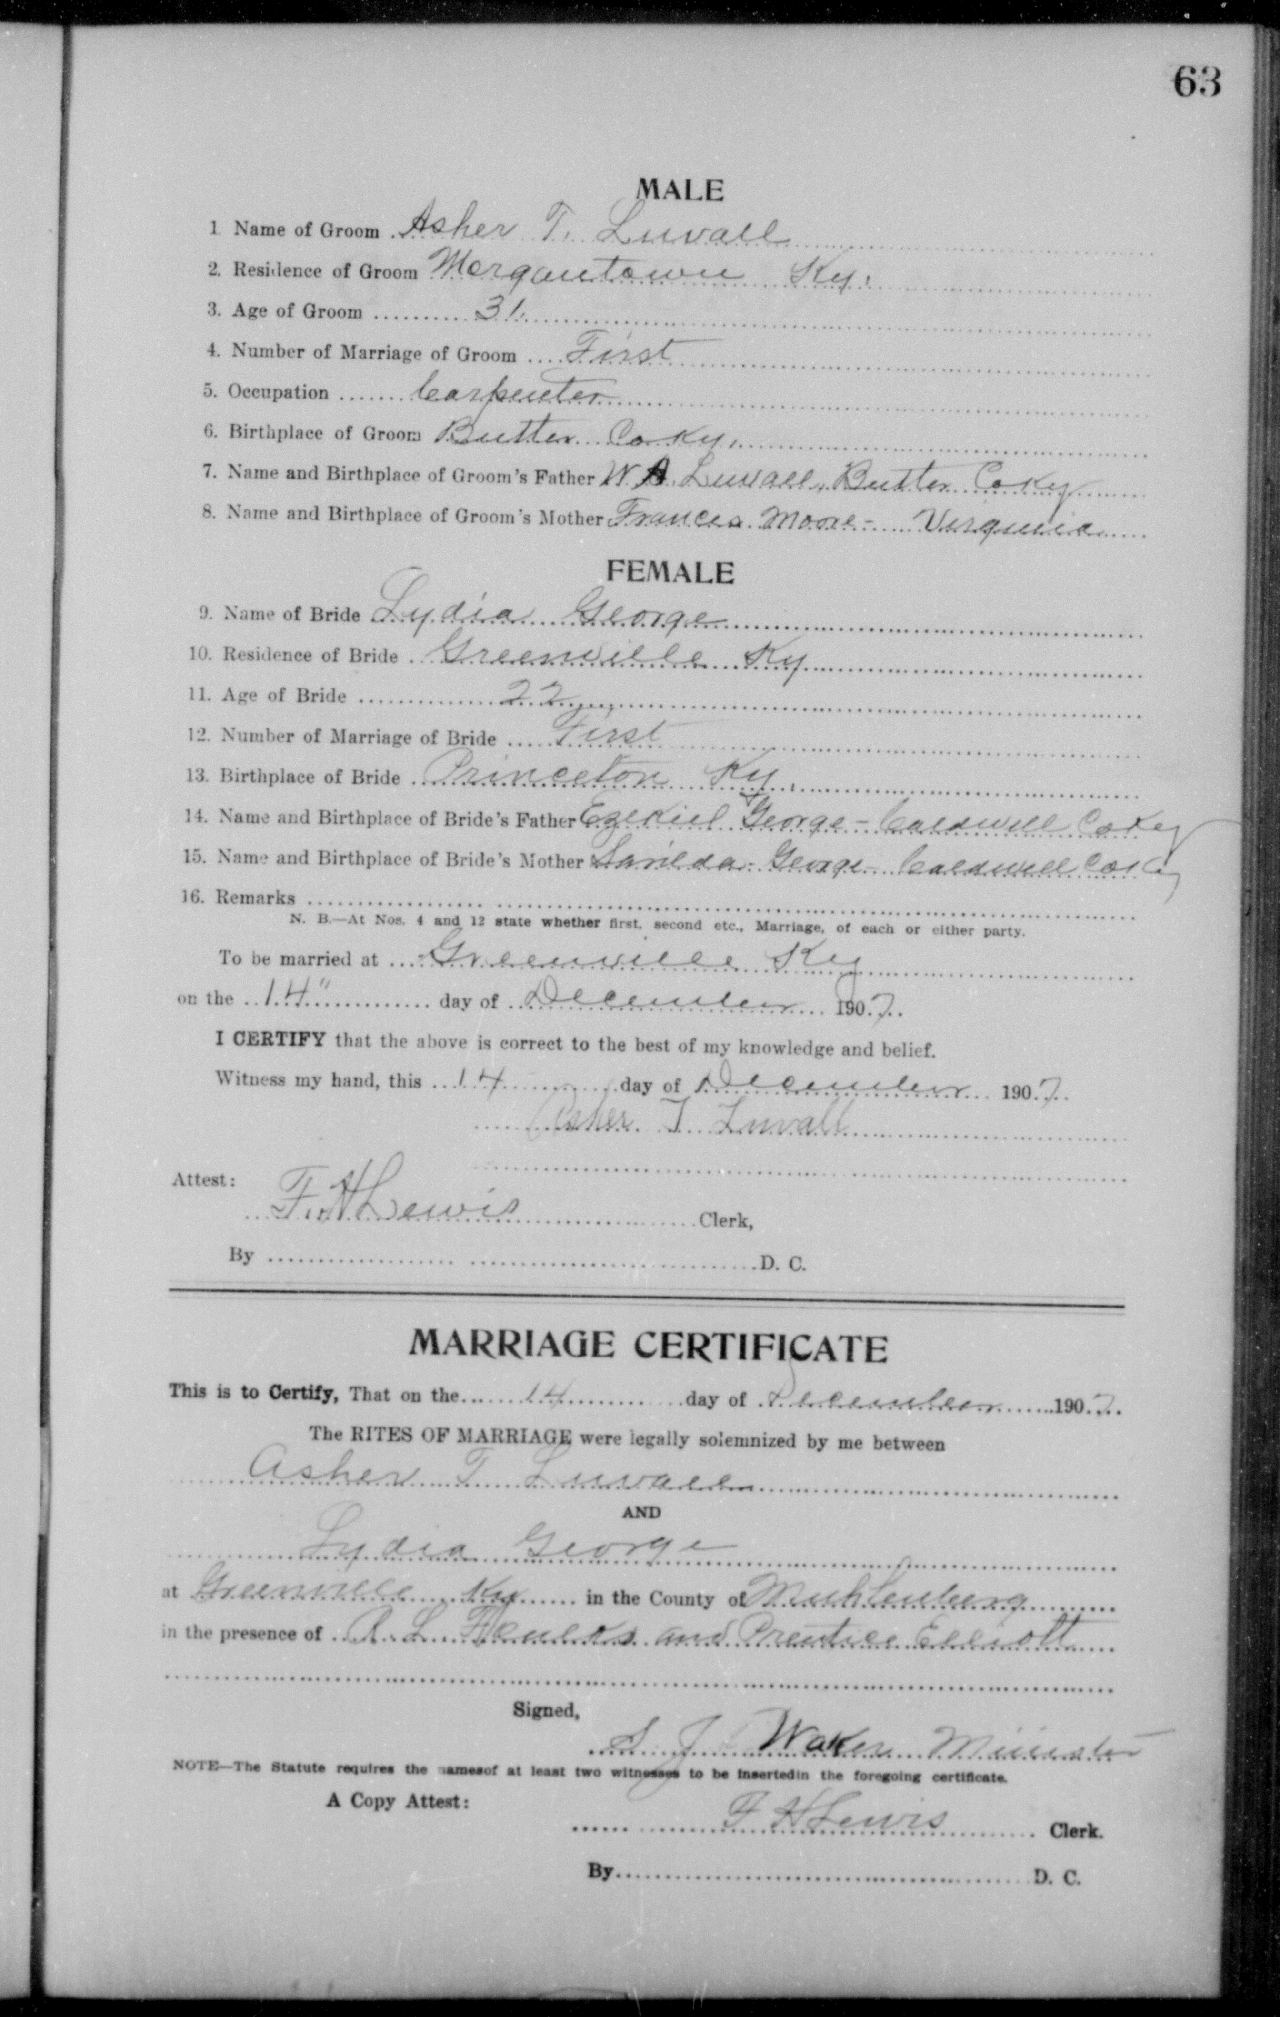 63
MALE
1 Name of Groom Asher T. Luvall
2. Residence of Groom Morgantown Ky.
3. Age of Groom 31
4. Number of Marriage of Groom First
5. Occupation Carpenter
6. Birthplace of Groom Butler Co Ky.
7. Name and Birthplace of Groom's Father W A Luvall, Butler Co Ky
8. Name and Birthplace of Groom's Mother Frances Moore - Virginia
FEMALE
9. Name of Bride Lydia George
10. Residence of Bride Greenville Ky
11. Age of Bride 22
12. Number of Marriage of Bride First
13. Birthplace of Bride Princeton Ky.
14. Name and Birthplace of Bride's Father Ezekiel George - Caldwell Co Ky
15. Name and Birthplace of Bride's Mother George - Caldwell Co Ky
16. Remarks
N. B.—At Nos. 4 and 12 state whether first, second etc., Marriage, of each or either party.
To be married at Greenville Ky
on the 14" day of December 1907.
I CERTIFY that the above is correct to the best of my knowledge and belief.
Witness my hand, this 14 day of December 1907.
Asher T Luvall
Attest:
F. H Lewis Clerk,
By D. C.
MARRIAGE CERTIFICATE
This is to Certify, That on the 14 day of December 1907.
The RITES OF MARRIAGE were legally solemnized by me between
Asher T Luvall
AND
Lydia George
at Greenville Ky in the County of Muhlenberg
in the presence of R. L. and Prentice Elliott
Signed,
S J Waker Minister
NOTE—The Statute requires the namesof at least two witnesses to be insertedin the foregoing certificate.
A Copy Attest:
F H Lewis Clerk.
By D. C.